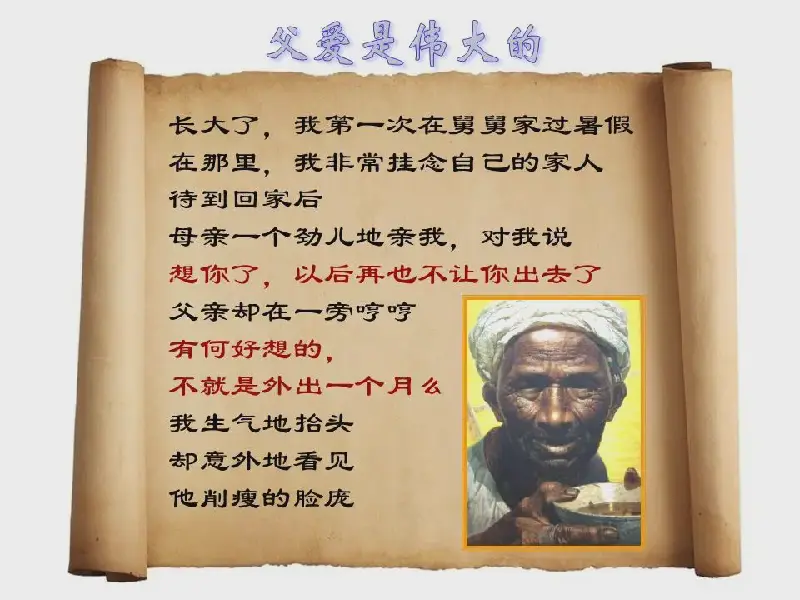 父爱是伟大的
长大了，我第一次在舅舅家过暑假
在那里，我非常挂念自己的家人
待到回家后
母亲一个劲儿地亲我，对我说
想你了，以后再也不让你出去了
父亲却在一旁哼哼
有何好想的，
不就是外出一个月么
我生气地抬头
却意外地看见
他削瘦的脸庞